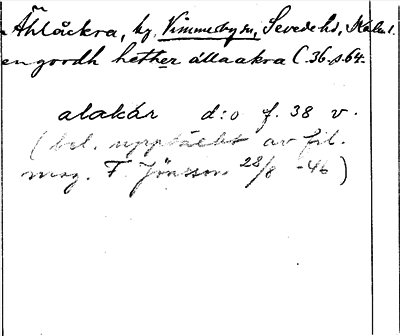 Åhlåckra, hg. Vimmerby sn, Sevede hd, Kalm. l.
en gordh hether ållaakra C. 36. s. 64.
alakár d:o f. 38 v.
(bel. upptäckt av fil.
mag. F. Jönsson 28/8 -46)